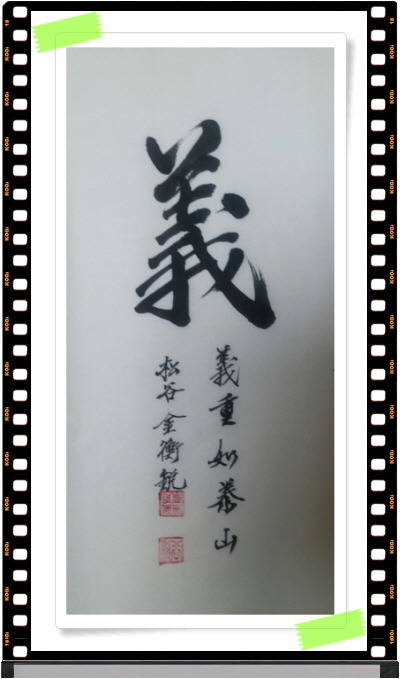 義
義重如泰山
松谷 金衡